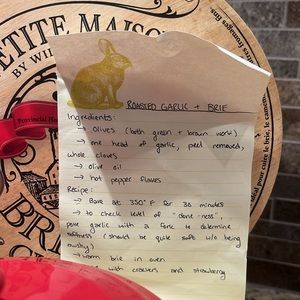 PETITE MAISON
BY WIL
Provincial
BRI
ROASTED GARLIC + BRIE
Ingredients:
→ Olives (both green + brown work)
→ one head of garlic, peel removed,
whole cloves
→ olive oil
→ hot pepper flakes
Recipe:
→ Bake at 350°F for 30 minutes
→ to check level of "done-ness",
poke garlic with a fork to determine
softness (should be quite soft w/o being
mushy)
→ warm brie in oven
with crackers and strawberry